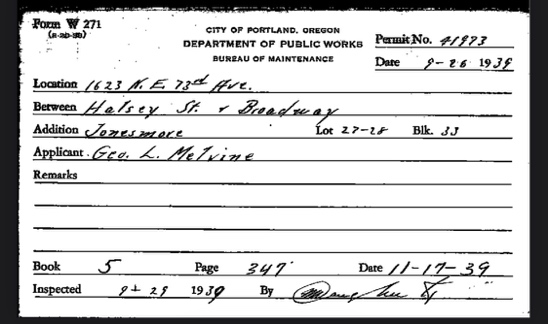 Form W 271
CITY OF PORTLAND, OREGON
DEPARTMENT OF PUBLIC WORKS
BUREAU OF MAINTENANCE
Permit No. 41973
Date 9-26 1939
Location 1623 N.E. 73rd Ave.
Between Halsey St. & Broadway
Addition Jonesmore Lot 27-28 Blk. 33
Applicant Geo. L. Melvine
Remarks
Book 5 Page 347 Date 11-17-39
Inspected 9-29 1939 By